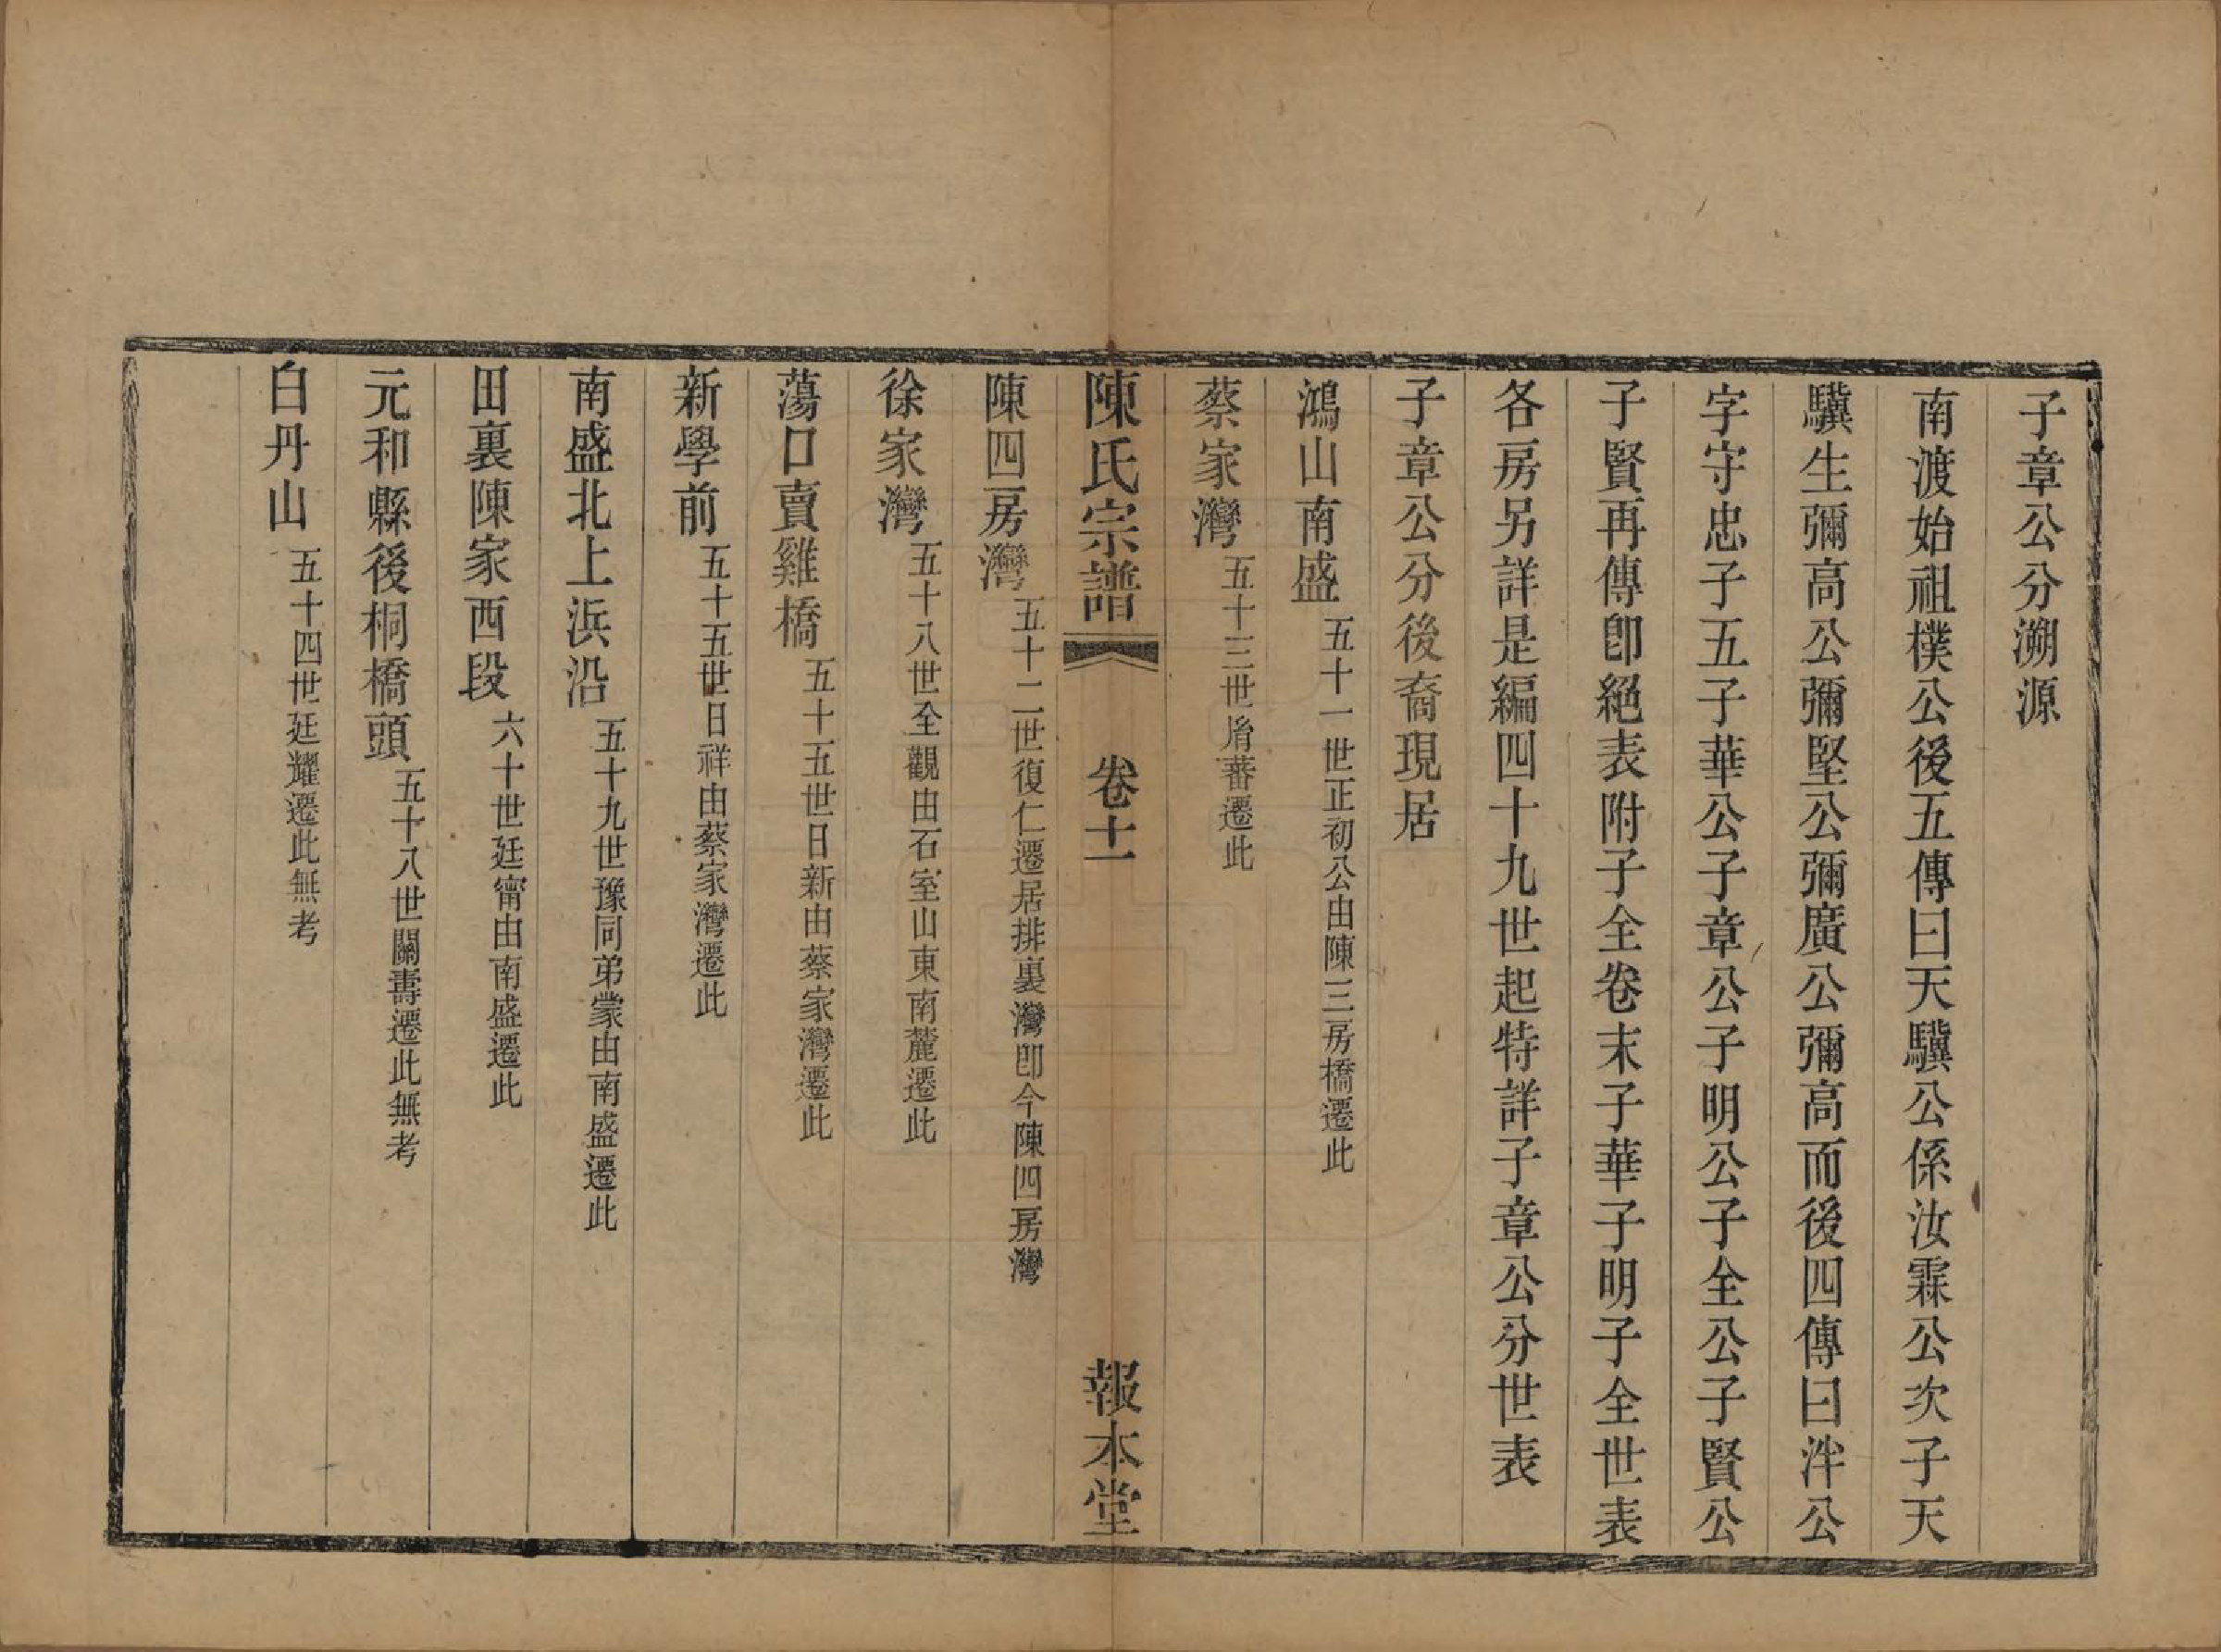 子章公分溯源
南渡始祖樸公後五傳曰天驥公係汝霖公次子天
驥生彌高公彌堅公彌廣公彌高而後四傳曰泮公
字守忠子五子華公子章公子明公子全公子賢公
子賢再傳卽絕表附子全卷末子華子明子全世表
各房另詳是編四十九世起特詳子章公分世表
子章公分後裔現居
鴻山南盛五十一世正初公由陳三房橋遷此
蔡家灣五十三世胤蕃遷此
陳氏宗譜 卷十一 報本堂
陳四房灣五十二世復仁遷居排裏灣卽今陳四房灣
徐家灣五十八世全觀由石室山東南麓遷此
蕩口賣雞橋五十五世日新由蔡家灣遷此
新學前五十五世日祥由蔡家灣遷此
南盛北上浜沿五十九世豫同弟蒙由南盛遷此
田裏陳家西段六十世廷甯由南盛遷此
元和縣後桐橋頭五十八世關壽遷此無考
白丹山五十四世廷耀遷此無考